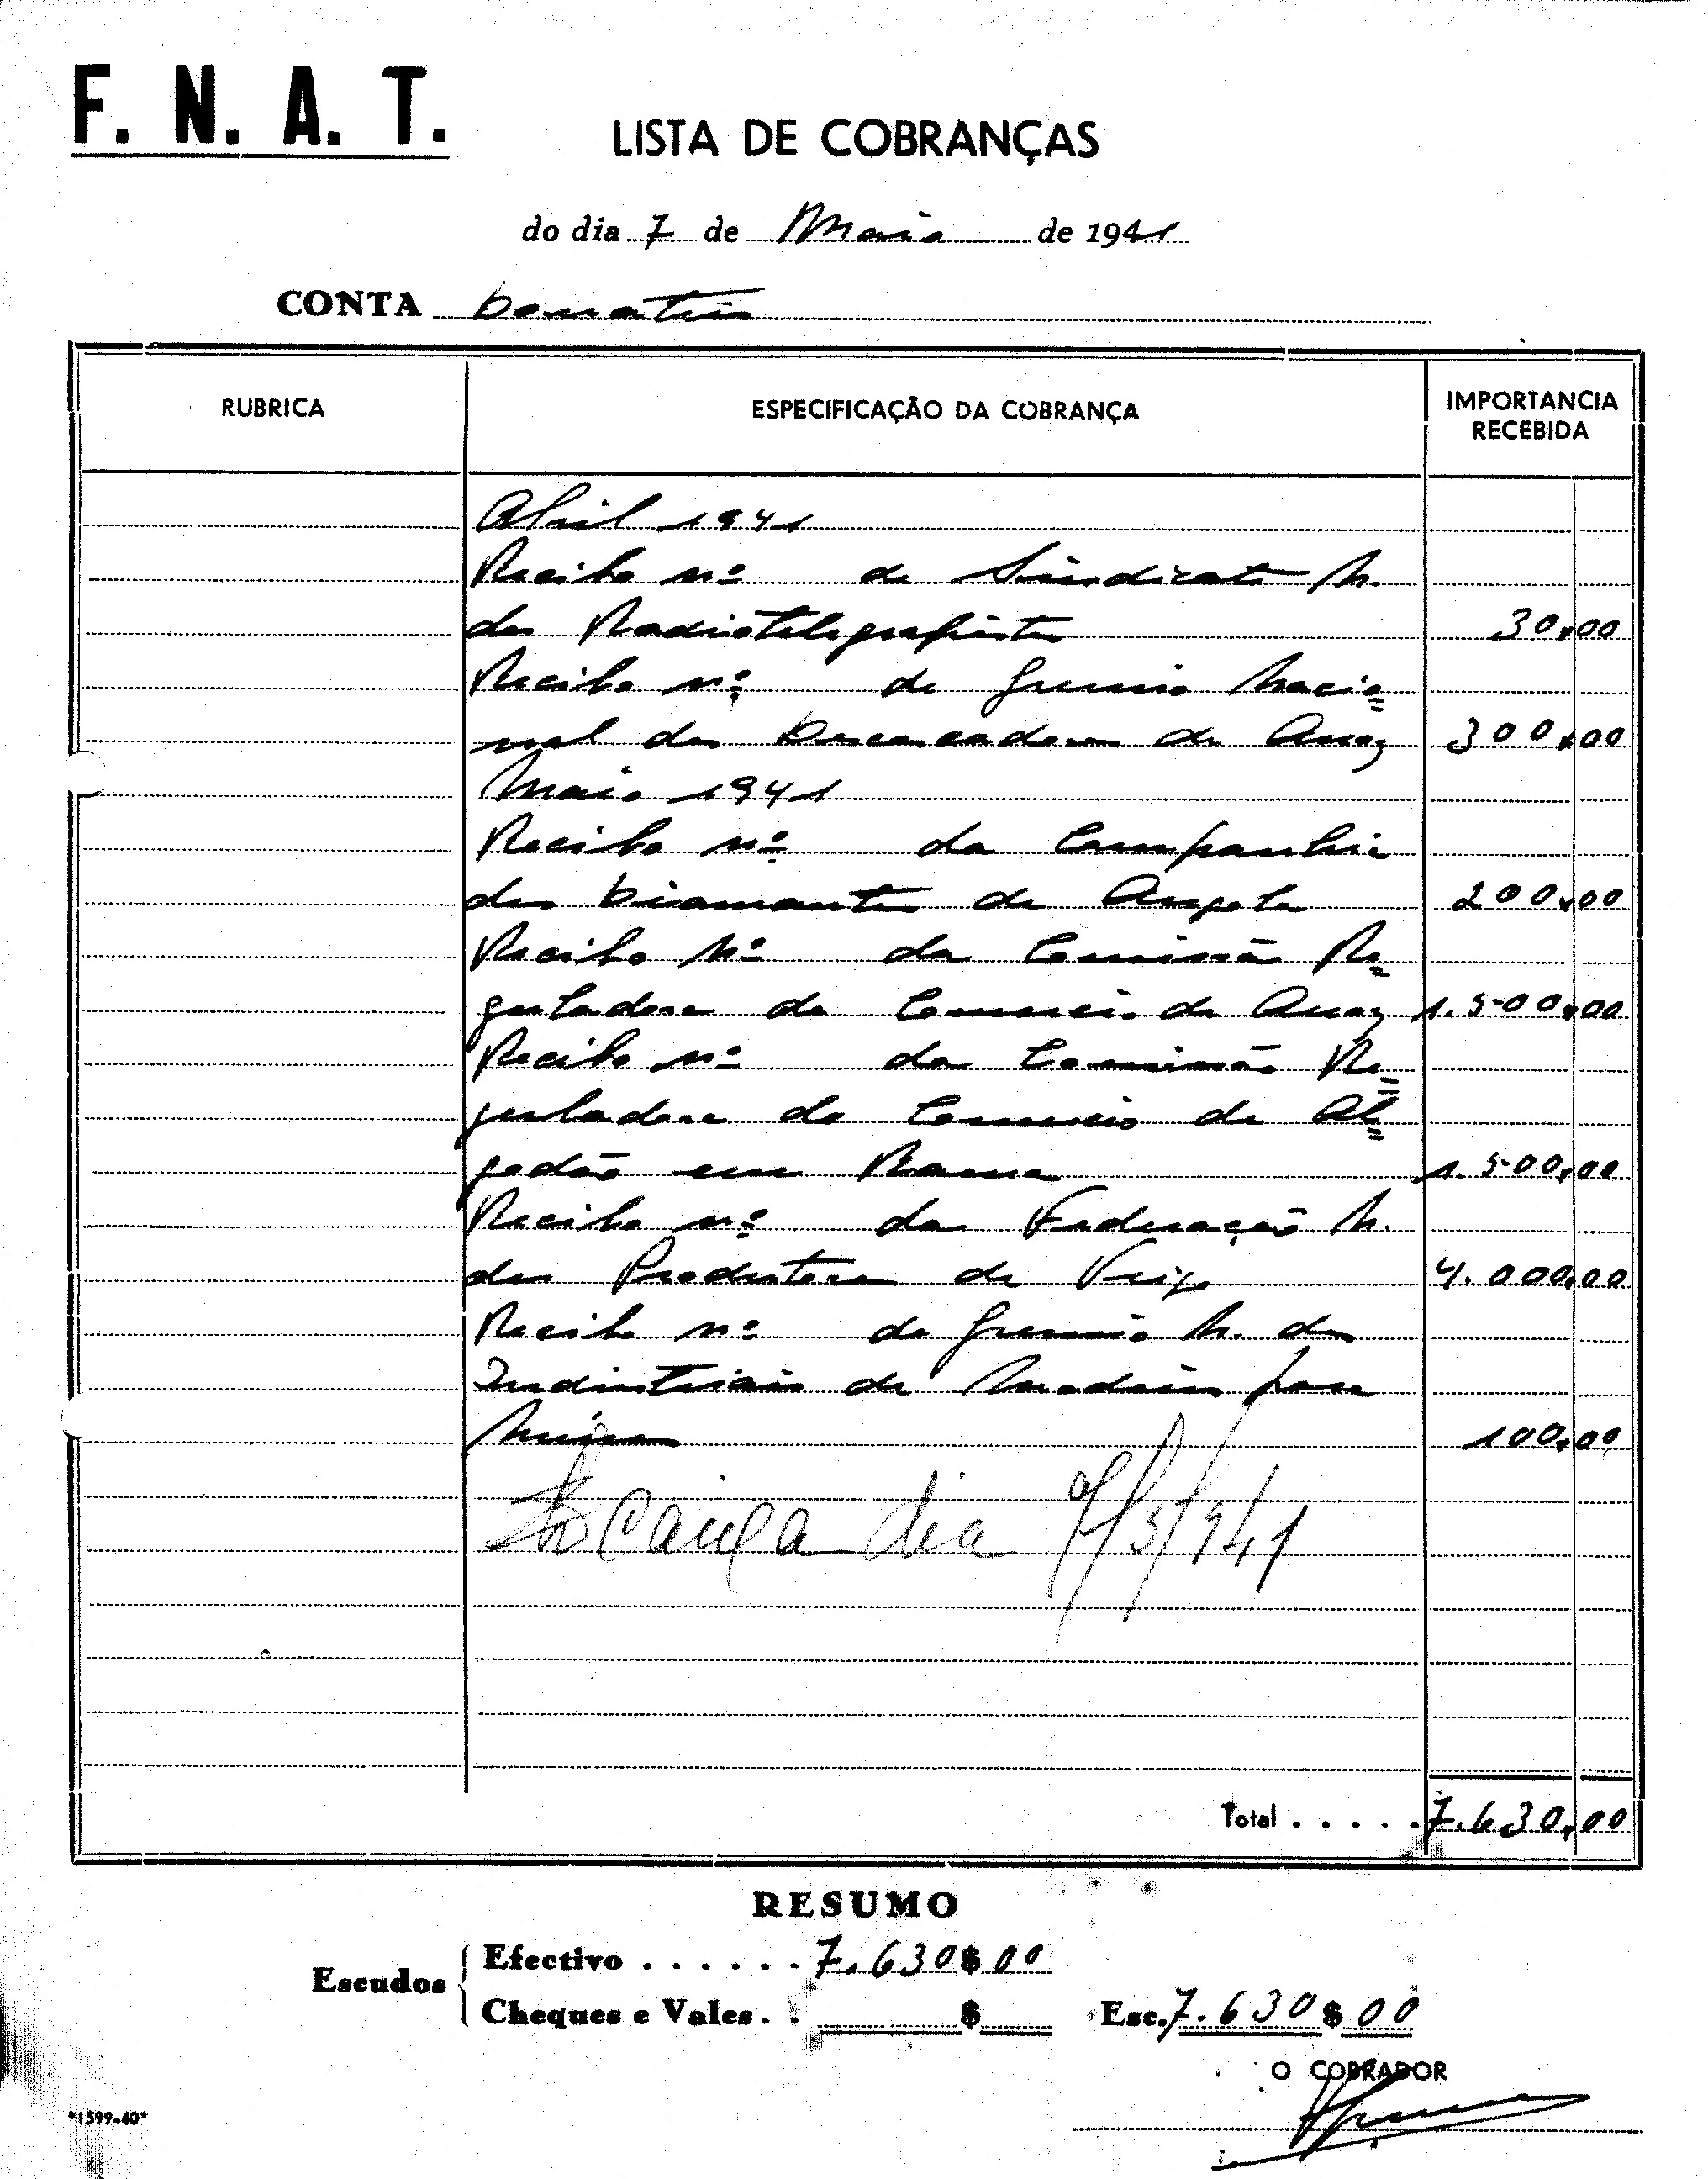 F. N. A. T.
LISTA DE COBRANÇAS
do dia 7 de Maio de 1941
CONTA Donativos
RUBRICA
ESPECIFICAÇÃO DA COBRANÇA
IMPORTANCIA
RECEBIDA
Abril 1941
Recibo nº do Sindicato N.
dos Radiotelegrafistas 30$00
Recibo nº do Gremio Nacio=
nal dos Descascadores de Arroz 300$00
Maio 1941
Recibo nº da Companhia
dos Diamantes de Angola 200$00
Recibo Nº da Comissão Re=
guladora do Comercio de Arroz 1.500$00
Recibo nº da Comissão Re=
guladora do Comercio de Al=
godão em Rama 1.500$00
Recibo nº da Federação N.
dos Produtores de Trigo 4.000$00
Recibo nº do Gremio N. dos
Industriais de Madeira para
Minas 100$00
Caixa dia 7/5/941
Total . . . . . 7.630$00
RESUMO
Escudos
Efectivo . . . . . . 7.630$00
Cheques e Vales. . $
Esc. 7.630$00
O COBRADOR
*1599-40*